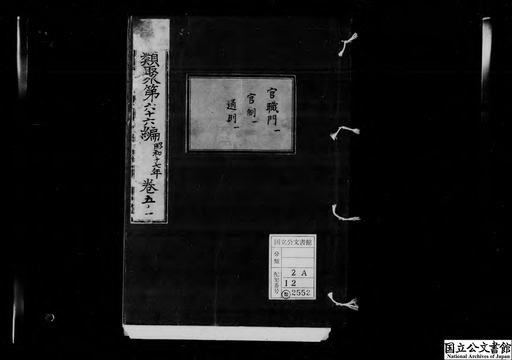 類聚第六十六編 昭和十七年 巻五ノ一
官職門一
官制一
通則一
国立公文書館
分類
配架番号
2 A
12
2552
国立公文書館
National Archives of Japan